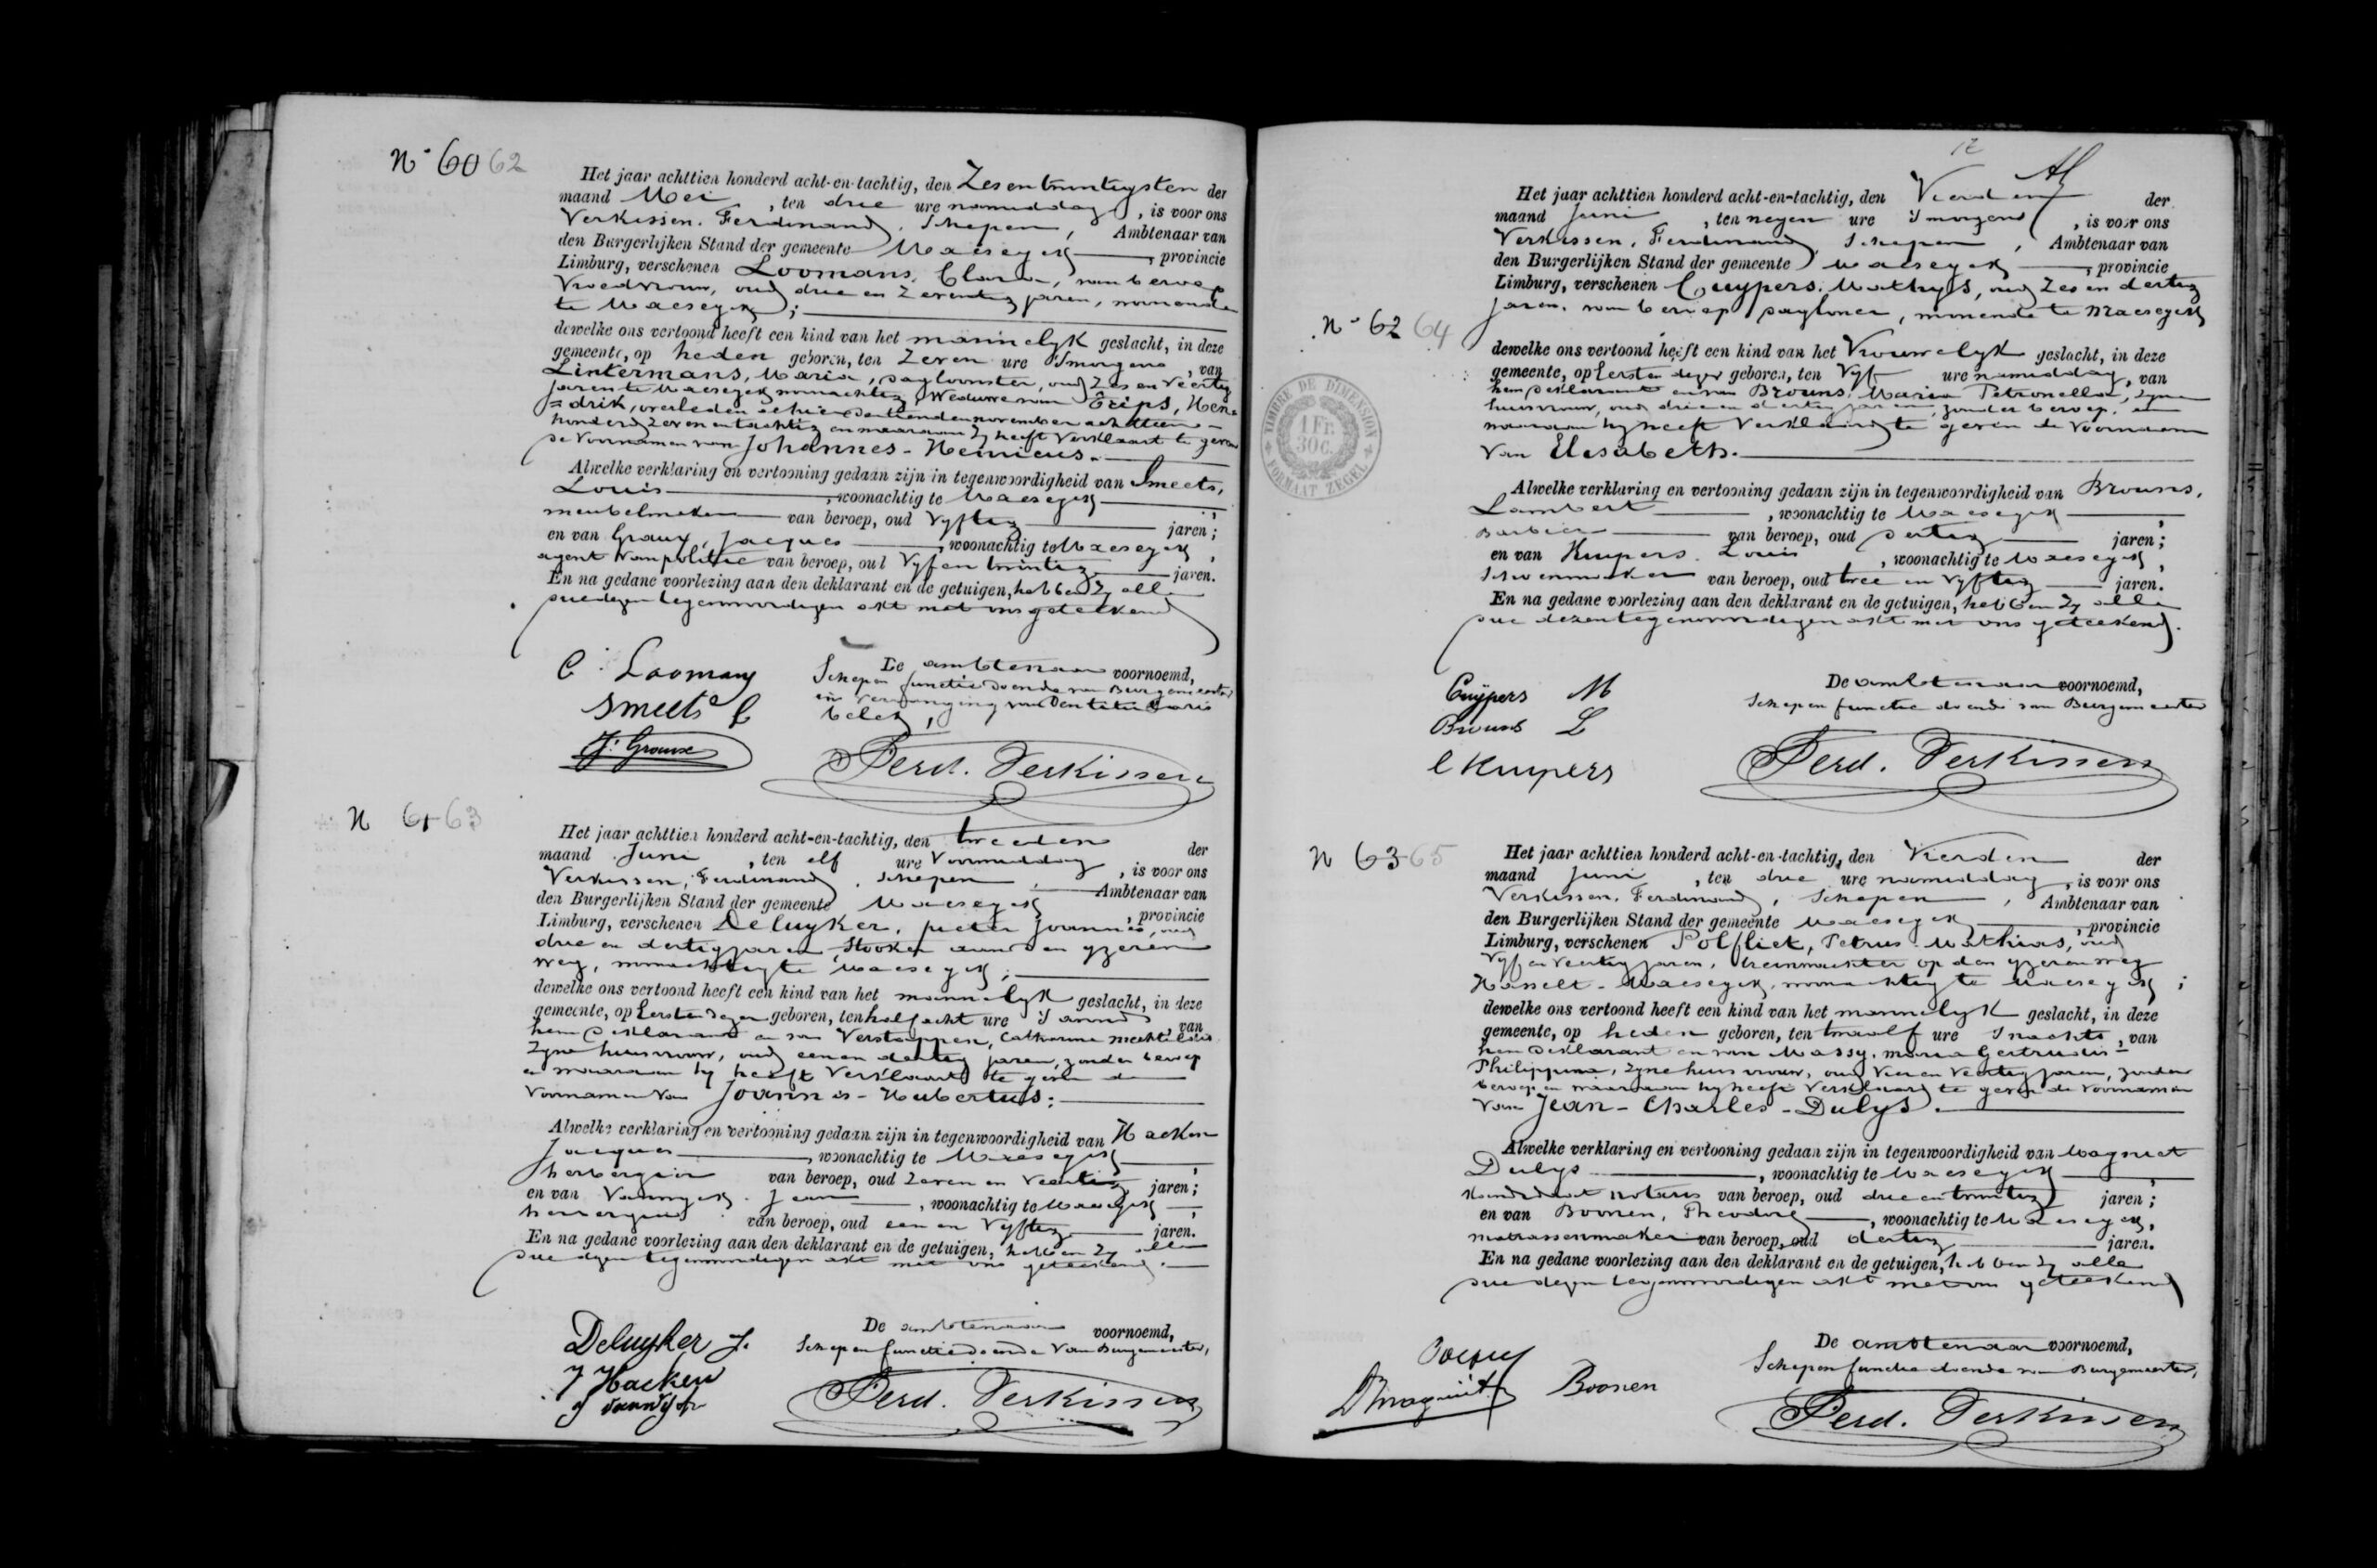 N° 60 62
Het jaar achttien honderd acht-en-tachtig, den Zesentwintigsten der
maand Mei, ten drie ure namiddag, is voor ons
Verkissen, Ferdinand, Schepen, Ambtenaar van
den Burgerlijken Stand der gemeente Maeseyck, provincie
Limburg, verschenen Loomans, Clara, van beroep
Vroedvrouw, oud drie en Zeventig jaren, wonende
te Maeseyck;
dewelke ons vertoond heeft een kind van het mannelyk geslacht, in deze
gemeente, op heden geboren, ten Zeven ure Smorgens, van
Linkermans, Maria, dagloonster, oud Zes en Veertig
jaren te Maeseyck woonachtig, Weduwe van Trips, Hen=
=drik, overleden alhier den tienden november achttien
honderd Zeven en tachtig en waaraan Zy heeft Verklaart te geven
de Voornamen van Johannes-Henricus.
Alwelke verklaring en vertooning gedaan zijn in tegenwoordigheid van Smeets,
Louis, woonachtig te Maeseyck,
meubelmaker van beroep, oud Vyftig jaren;
en van Graux, Jacques, woonachtig te Maeseyck,
agent van politie van beroep, oud Vyf en twintig jaren.
En na gedane voorlezing aan den deklarant en de getuigen, hebben Zy alle
drie dezen tegenwoordigen akt met ons geteekend
C. Loomans
Smeets L
J. Graux
De ambtenaar voornoemd,
Schepen functie doende van Burgemeester
in vervanging van den titularis
belet,
Ferd. Verkissen
N 61 63
Het jaar achttien honderd acht-en-tachtig, den tweeden der
maand Juni, ten elf ure Voormiddag, is voor ons
Verkissen, Ferdinand, Schepen, Ambtenaar van
den Burgerlijken Stand der gemeente Maeseyck, provincie
Limburg, verschenen Deluyker, pieter Joannes, oud
drie en dertig jaren, Stooker aan den yzeren
weg, woonachtig te Maeseyck;
dewelke ons vertoond heeft een kind van het mannelyk geslacht, in deze
gemeente, op Eersten dezer geboren, ten half acht ure S'avonds, van
hem Deklarant en van Verstappen, Catharina Mechtildis
Zyne huisvrouw, oud een en dertig jaren, zonder beroep
en waaraan hy heeft Verklaart te geven de
Voornamen Van Joannes-Hubertus;
Alwelke verklaring en vertooning gedaan zijn in tegenwoordigheid van Hacken
Jacques, woonachtig te Maeseyck,
herbergier van beroep, oud Zeven en Veertig jaren;
en van Jean, woonachtig te Maeseyck,
herbergier van beroep, oud een en Vyftig jaren.
En na gedane voorlezing aan den deklarant en de getuigen, hebben Zy alle
drie dezen tegenwoordigen akt met ons geteekend.
Deluyker J.
J Hacken
De ambtenaar voornoemd,
Schepen functie doende Van Burgemeester,
Ferd. Verkissen
12
N° 62 64
Het jaar achttien honderd acht-en-tachtig, den Vierden der
maand Juni, ten negen ure Smorgens, is voor ons
Verkissen, Ferdinand, Schepen, Ambtenaar van
den Burgerlijken Stand der gemeente Maeseyck, provincie
Limburg, verschenen Cuypers, Mathys, oud Zes en dertig
jaren, van beroep dagloner, wonende te Maeseyck
dewelke ons vertoond heeft een kind van het Vrouwelyk geslacht, in deze
gemeente, op Eersten dezer geboren, ten Vyf ure namiddag, van
hem Deklarant en van Brouns, Maria Petronella, Zyne
huisvrouw, oud drie en dertig jaren, zonder beroep, en
waaraan hy heeft Verklaard te geven de Voornaam
Van Elisabeth.
Alwelke verklaring en vertooning gedaan zijn in tegenwoordigheid van Brouns,
Lambert, woonachtig te Maeseyck,
Barbier van beroep, oud dertig jaren;
en van Kuypers, Louis, woonachtig te Maeseyck,
Schoenmaker van beroep, oud twee en Vyftig jaren.
En na gedane voorlezing aan den deklarant en de getuigen, hebben Zy alle
drie dezen tegenwoordigen akt met ons geteekend.
Cuÿpers M
Brouns L
L Kuypers
De ambtenaar voornoemd,
Schepen functie doende van Burgemeester
Ferd. Verkissen
TIMBRE DE DIMENSION
1 Fr.
30 C.
FORMAAT ZEGEL
N 63 65
Het jaar achttien honderd acht-en-tachtig, den Vierden der
maand Juni, ten drie ure namiddag, is voor ons
Verkissen, Ferdinand, Schepen, Ambtenaar van
den Burgerlijken Stand der gemeente Maeseyck, provincie
Limburg, verschenen Polfliet, Petrus Mathias, oud
Vyf en Veertig jaren, treinwachter op den yzeren weg
Hasselt-Maeseyck, woonachtig te Maeseyck;
dewelke ons vertoond heeft een kind van het mannelyk geslacht, in deze
gemeente, op heden geboren, ten twaalf ure Snachts, van
hem Deklarant en van Massy, Maria Gertrudis
Philippina, Zyne huisvrouw, oud Vier en Veertig jaren, zonder
beroep en waaraan hy heeft Verklaard te geven de Voornamen
Van Jean-Charles-Dulys.
Alwelke verklaring en vertooning gedaan zijn in tegenwoordigheid van Magniet
Dulys, woonachtig te Maeseyck,
Kandidaat notaris van beroep, oud drie en twintig jaren;
en van Boonen, Theodore, woonachtig te Maeseyck,
matrassenmaker van beroep, oud dertig jaren.
En na gedane voorlezing aan den deklarant en de getuigen, hebben Zy alle
drie dezen tegenwoordigen akt met ons geteekend
Boonen
De ambtenaar voornoemd,
Schepen functie doende van Burgemeester,
Ferd. Verkissen